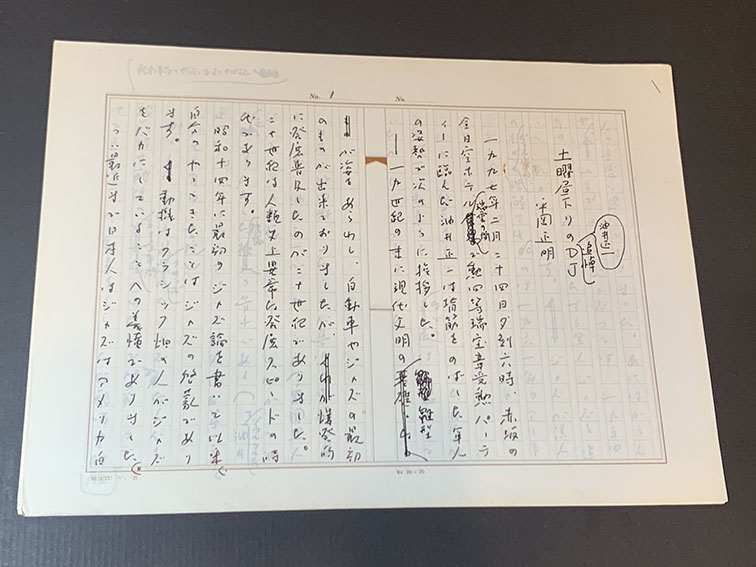 No. 1
No.
油井正一
追悼
土曜昼下りのDJ
平岡正明
一九九七年二月二十四日夕刻六時、赤坂の
全日空ホテル「瑞雲の間」、勲四等瑞宝章受勲パーテ
ィーに臨んだ油井正一は背筋をのばした軍人
の姿勢で次のように挨拶した。
――十九世紀の末に現代文明の雛型と
が姿をあらわし、自動車やジャズの最初
のものが出来ておりましたが、それが爆発的
に発展普及したのが二十世紀でありました。
二十世紀は人類史上異常な発展スピードの時
代であります。
昭和十四年に最初のジャズ論を書いて以来、
自分のやってきたことはジャズの啓蒙であり
ます。動機はクラシック畑の人がジャズ
をバカにしていることへの義憤でありました。
つい最近まで日本人はジャズはアメリカ白
20×20